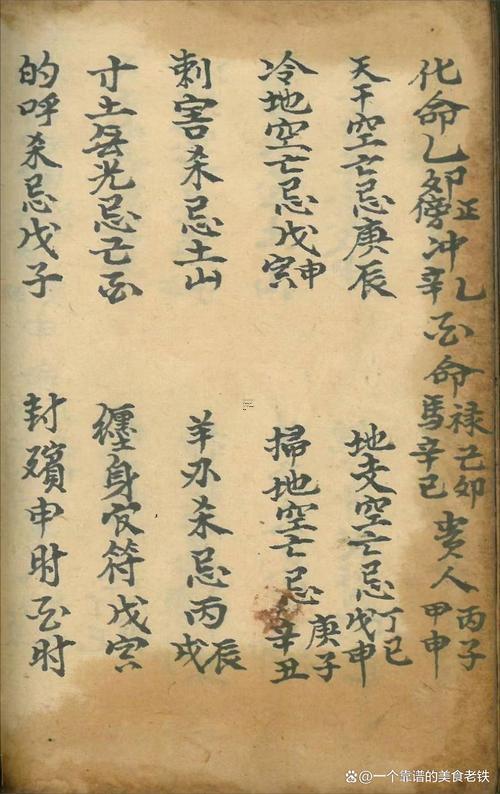 化命乙卯正傍冲乙辛酉命禄己卯馬辛巳貴人丙子甲申
天干空亡忌庚辰 地支空亡忌丁巳戊申
冷地空亡忌戊寅申 掃地空亡忌庚子辛丑
刺害杀忌土山 羊刃杀忌丙戌辰
寸土無光忌亡酉 纏身官符戊寅
的呼杀忌戊子 封殯申时酉时
@一个靠谱的美食老铁